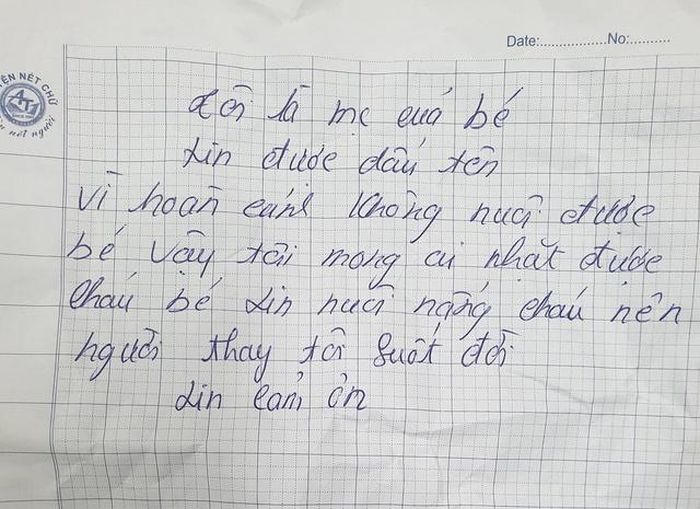 Date:..................No:..........
ỆN NÉT CHỮ
AT
nết người
Tôi là mẹ cuả bé
xin được dấu tên
vì hoàn cảnh không nuôi được
bé vậy tôi mong ai nhặt được
cháu bé xin nuôi nấng cháu nên
người thay tôi suốt đời
xin cảm ơn